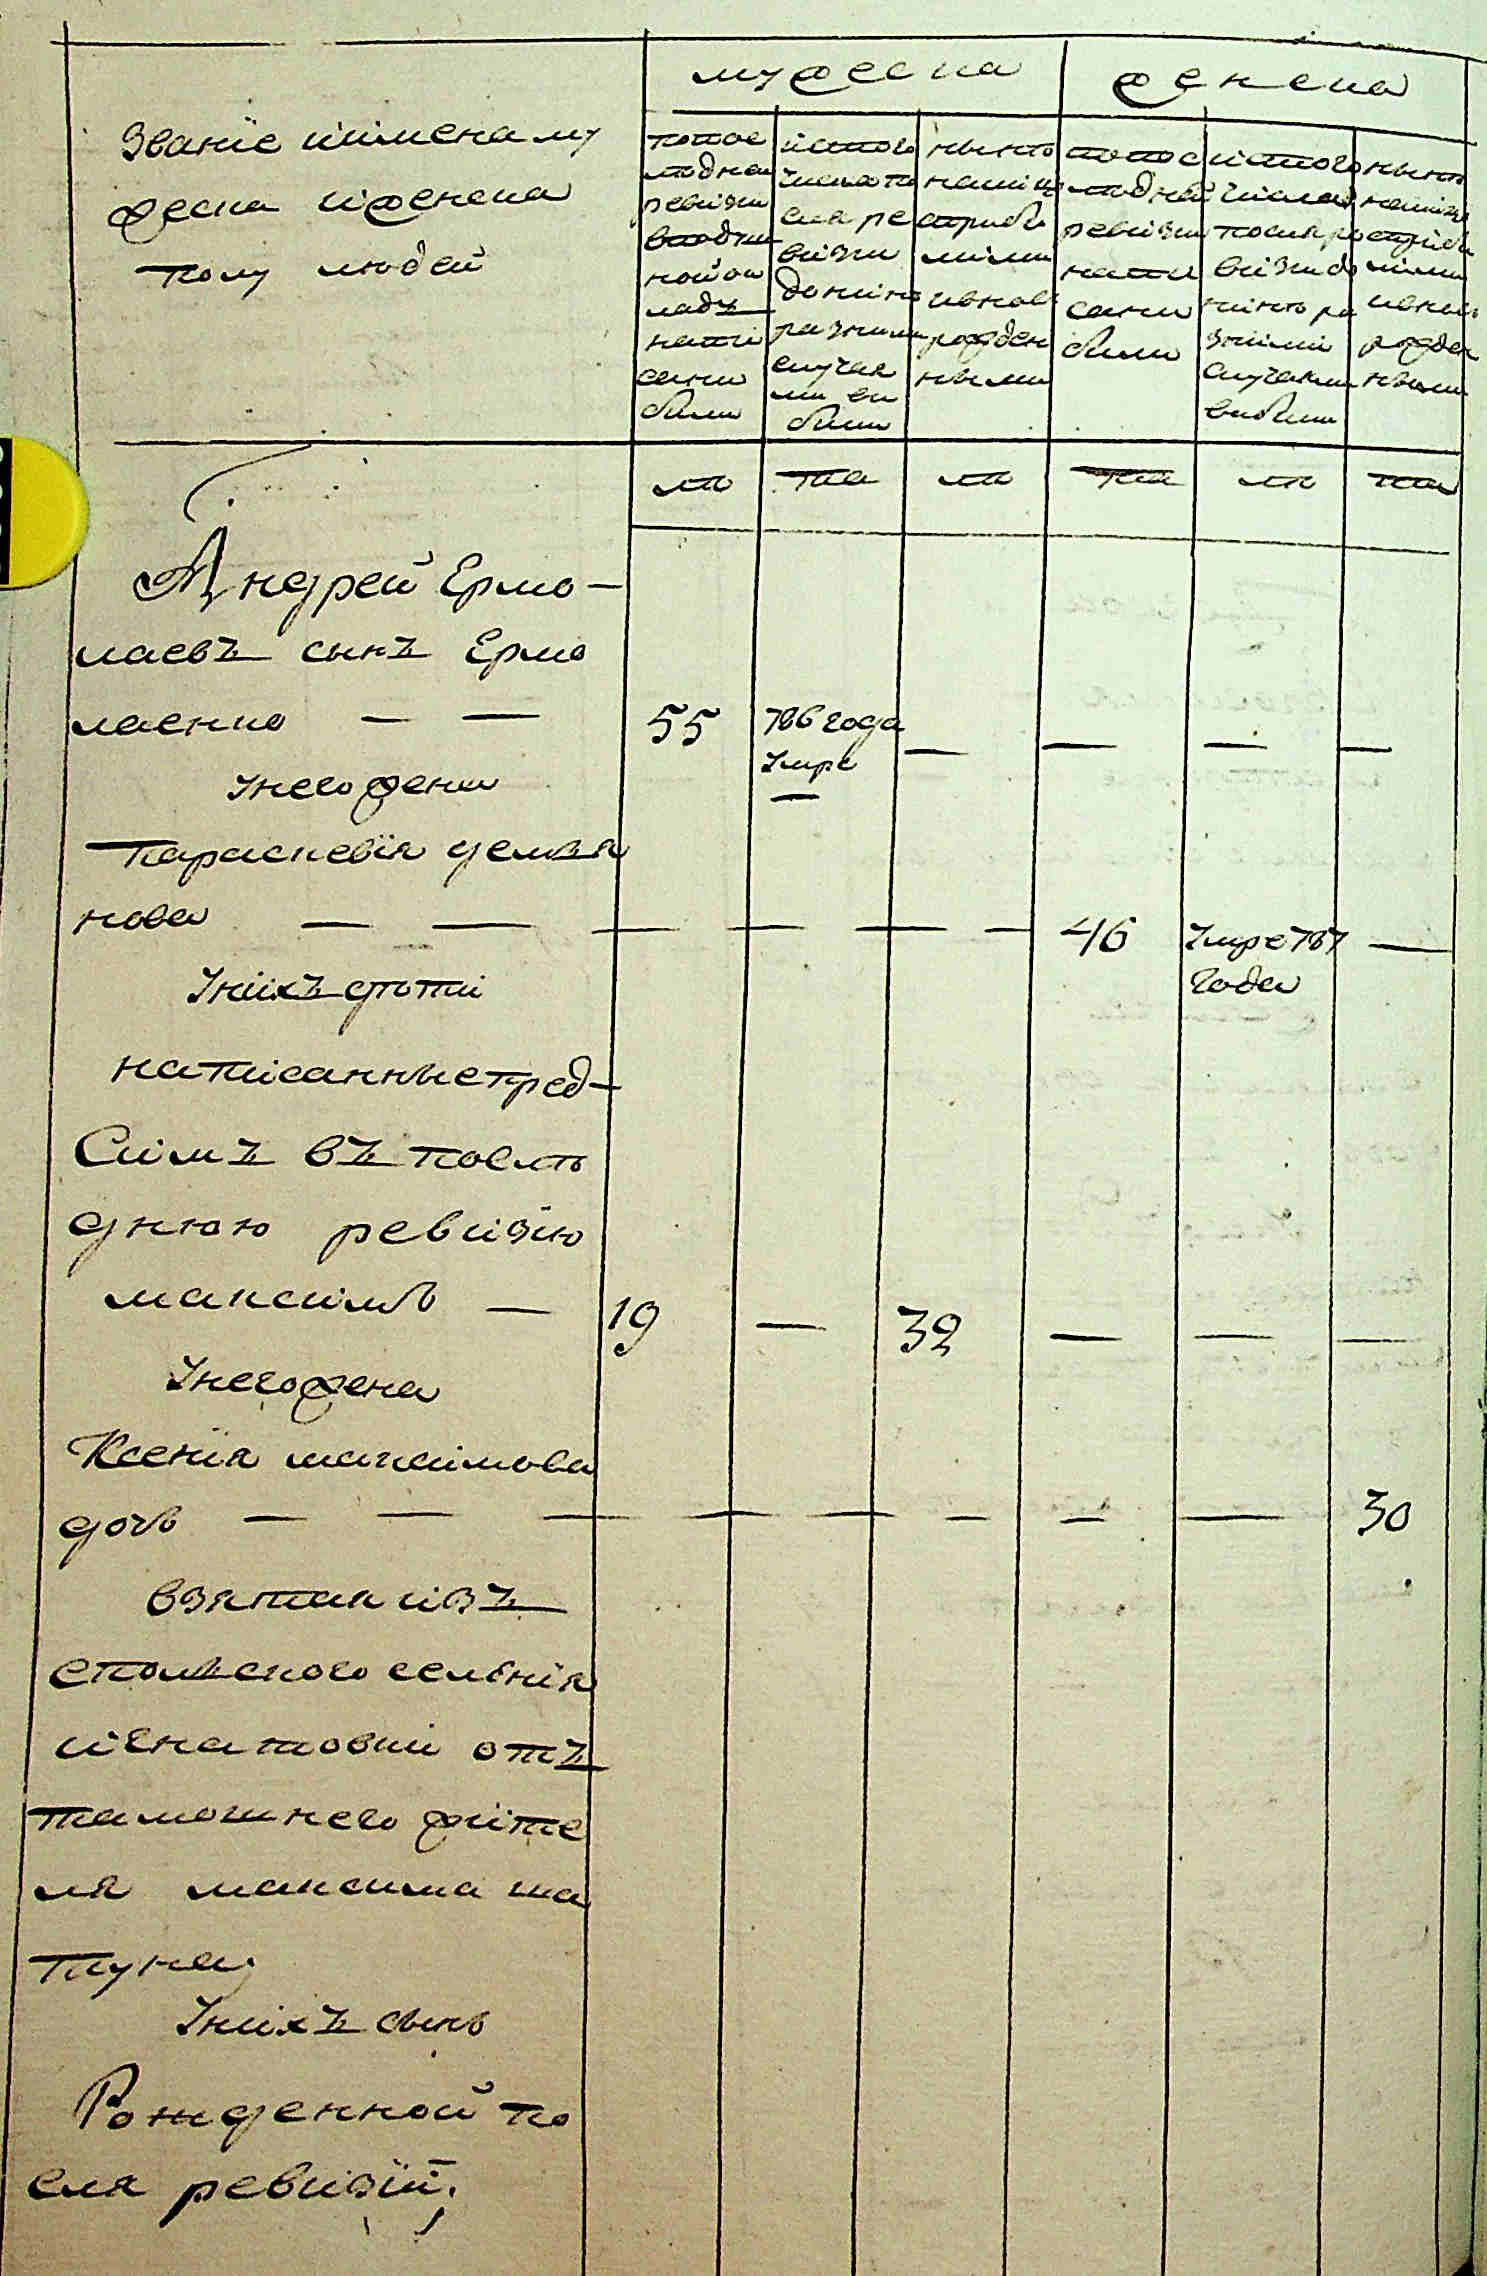 мужеска
женска
Званїе иимена му
жеска иженска
полу людей
попос
лѣдней
ревизіи
вподуш
ной ок
ладъ
напи
сани
были
изтого
числа по
сля ре
визіи
донинѣ
разными
случая
ми ви
были
нынѣ
налицо
сприбі
лыми
ивновь
рожден
ными
попос
лѣдней
ревизіи
напи
сани
были
изтого
числа
посля ре
визіи до
нинѣ ра
зними
случаями
вибыли
нынѣ
налицо
сприбі
лыми
ивновь
рожден
ными
лѣ
та
лѣ
та
лѣ
та
Андрей Ермо-
лаевъ сынъ Ермо
лаенко — — 55 786 года — — — —
Умре
Унего жена
—
Параскевїя демья
нова — — — — — — 46 Умре 787 —
года
Унихъ дѣти
написанные пред-
Симъ въ послѣ
днюю ревизїю
максимъ — 19 — 32 — — —
Унего жена
Ксенїя максимова
дочь — — — — — — — — 30
взятая изъ
споль́ского селенїя
игнатовки отъ
тамошнего жите
ля максима ша
пунa;
Унихъ сынъ
Рожденной по
сля ревизїи;